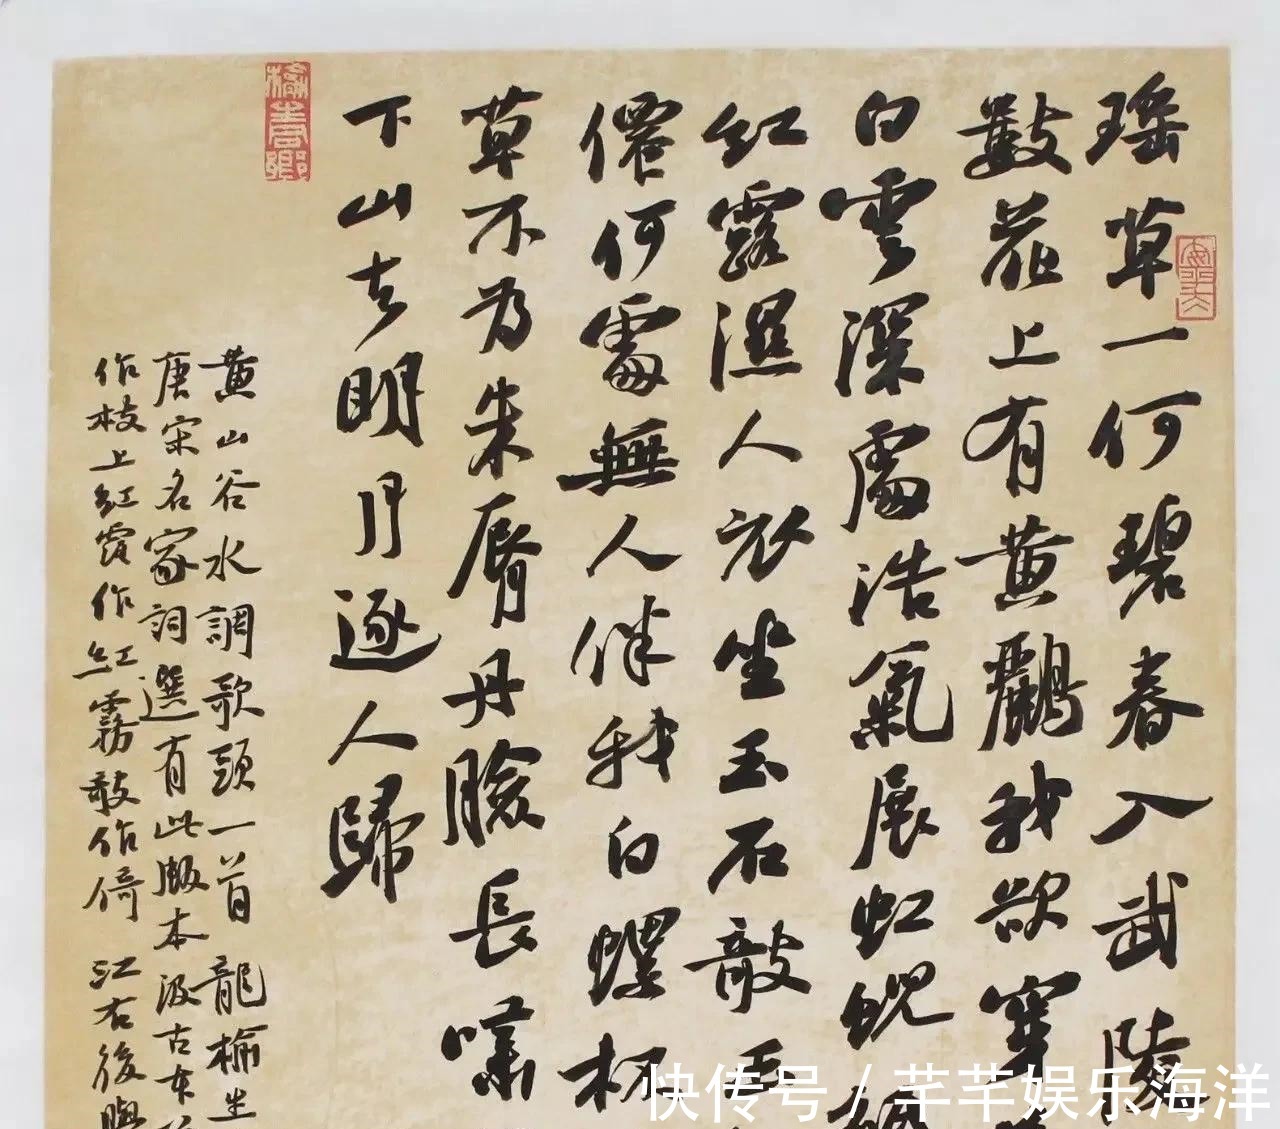 瑶草一何碧春入武陵
數花上有黄鸝我欲穿
白雲深處浩氣展虹蜺
紅露濕人衣坐玉石敲玉
僊何處無人伴我白螺杯
草不為朱脣丹臉長嘯
下山去明月逐人歸
黄山谷水調歌頭一首龍榆生
唐宋名家詞選有此版本汲古本
作枝上紅霞作紅霧敧作倚 江右後學
榆青卿
快传号 / 芊芊娱乐海洋